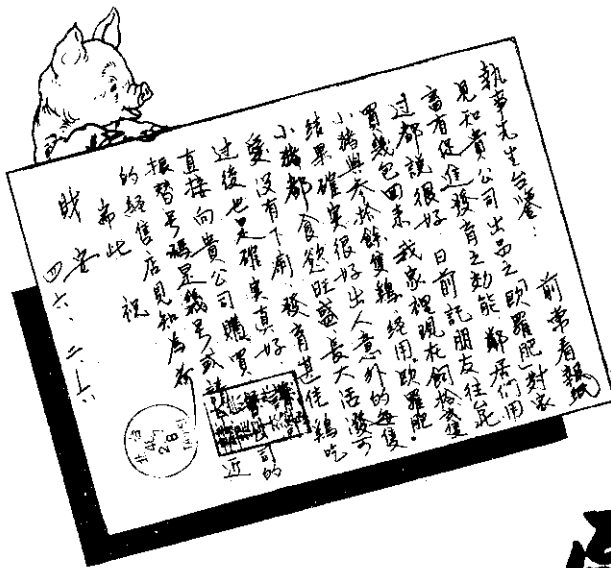 執事先生台鑒： 前常看報紙
見和貴公司出品之「歐羅肥」對家
畜有促進發育之効能 鄰居们用
过都說很好 日前託朋友往
買幾包回来 我家裡現在飼拾弍隻
小猪與叁拾餘隻鷄 经用歐羅肥。
结果確实很好出人意外的每隻
小猪都食慾旺盛長大活潑可
愛没有下痢 發育甚佳 鷄吃
过後也是確实真好
直接向貴公司購買
振替号碼是幾号或請 公司的
的經售店見知為荷 近
耑此 祝
財安
四六、二、六
28